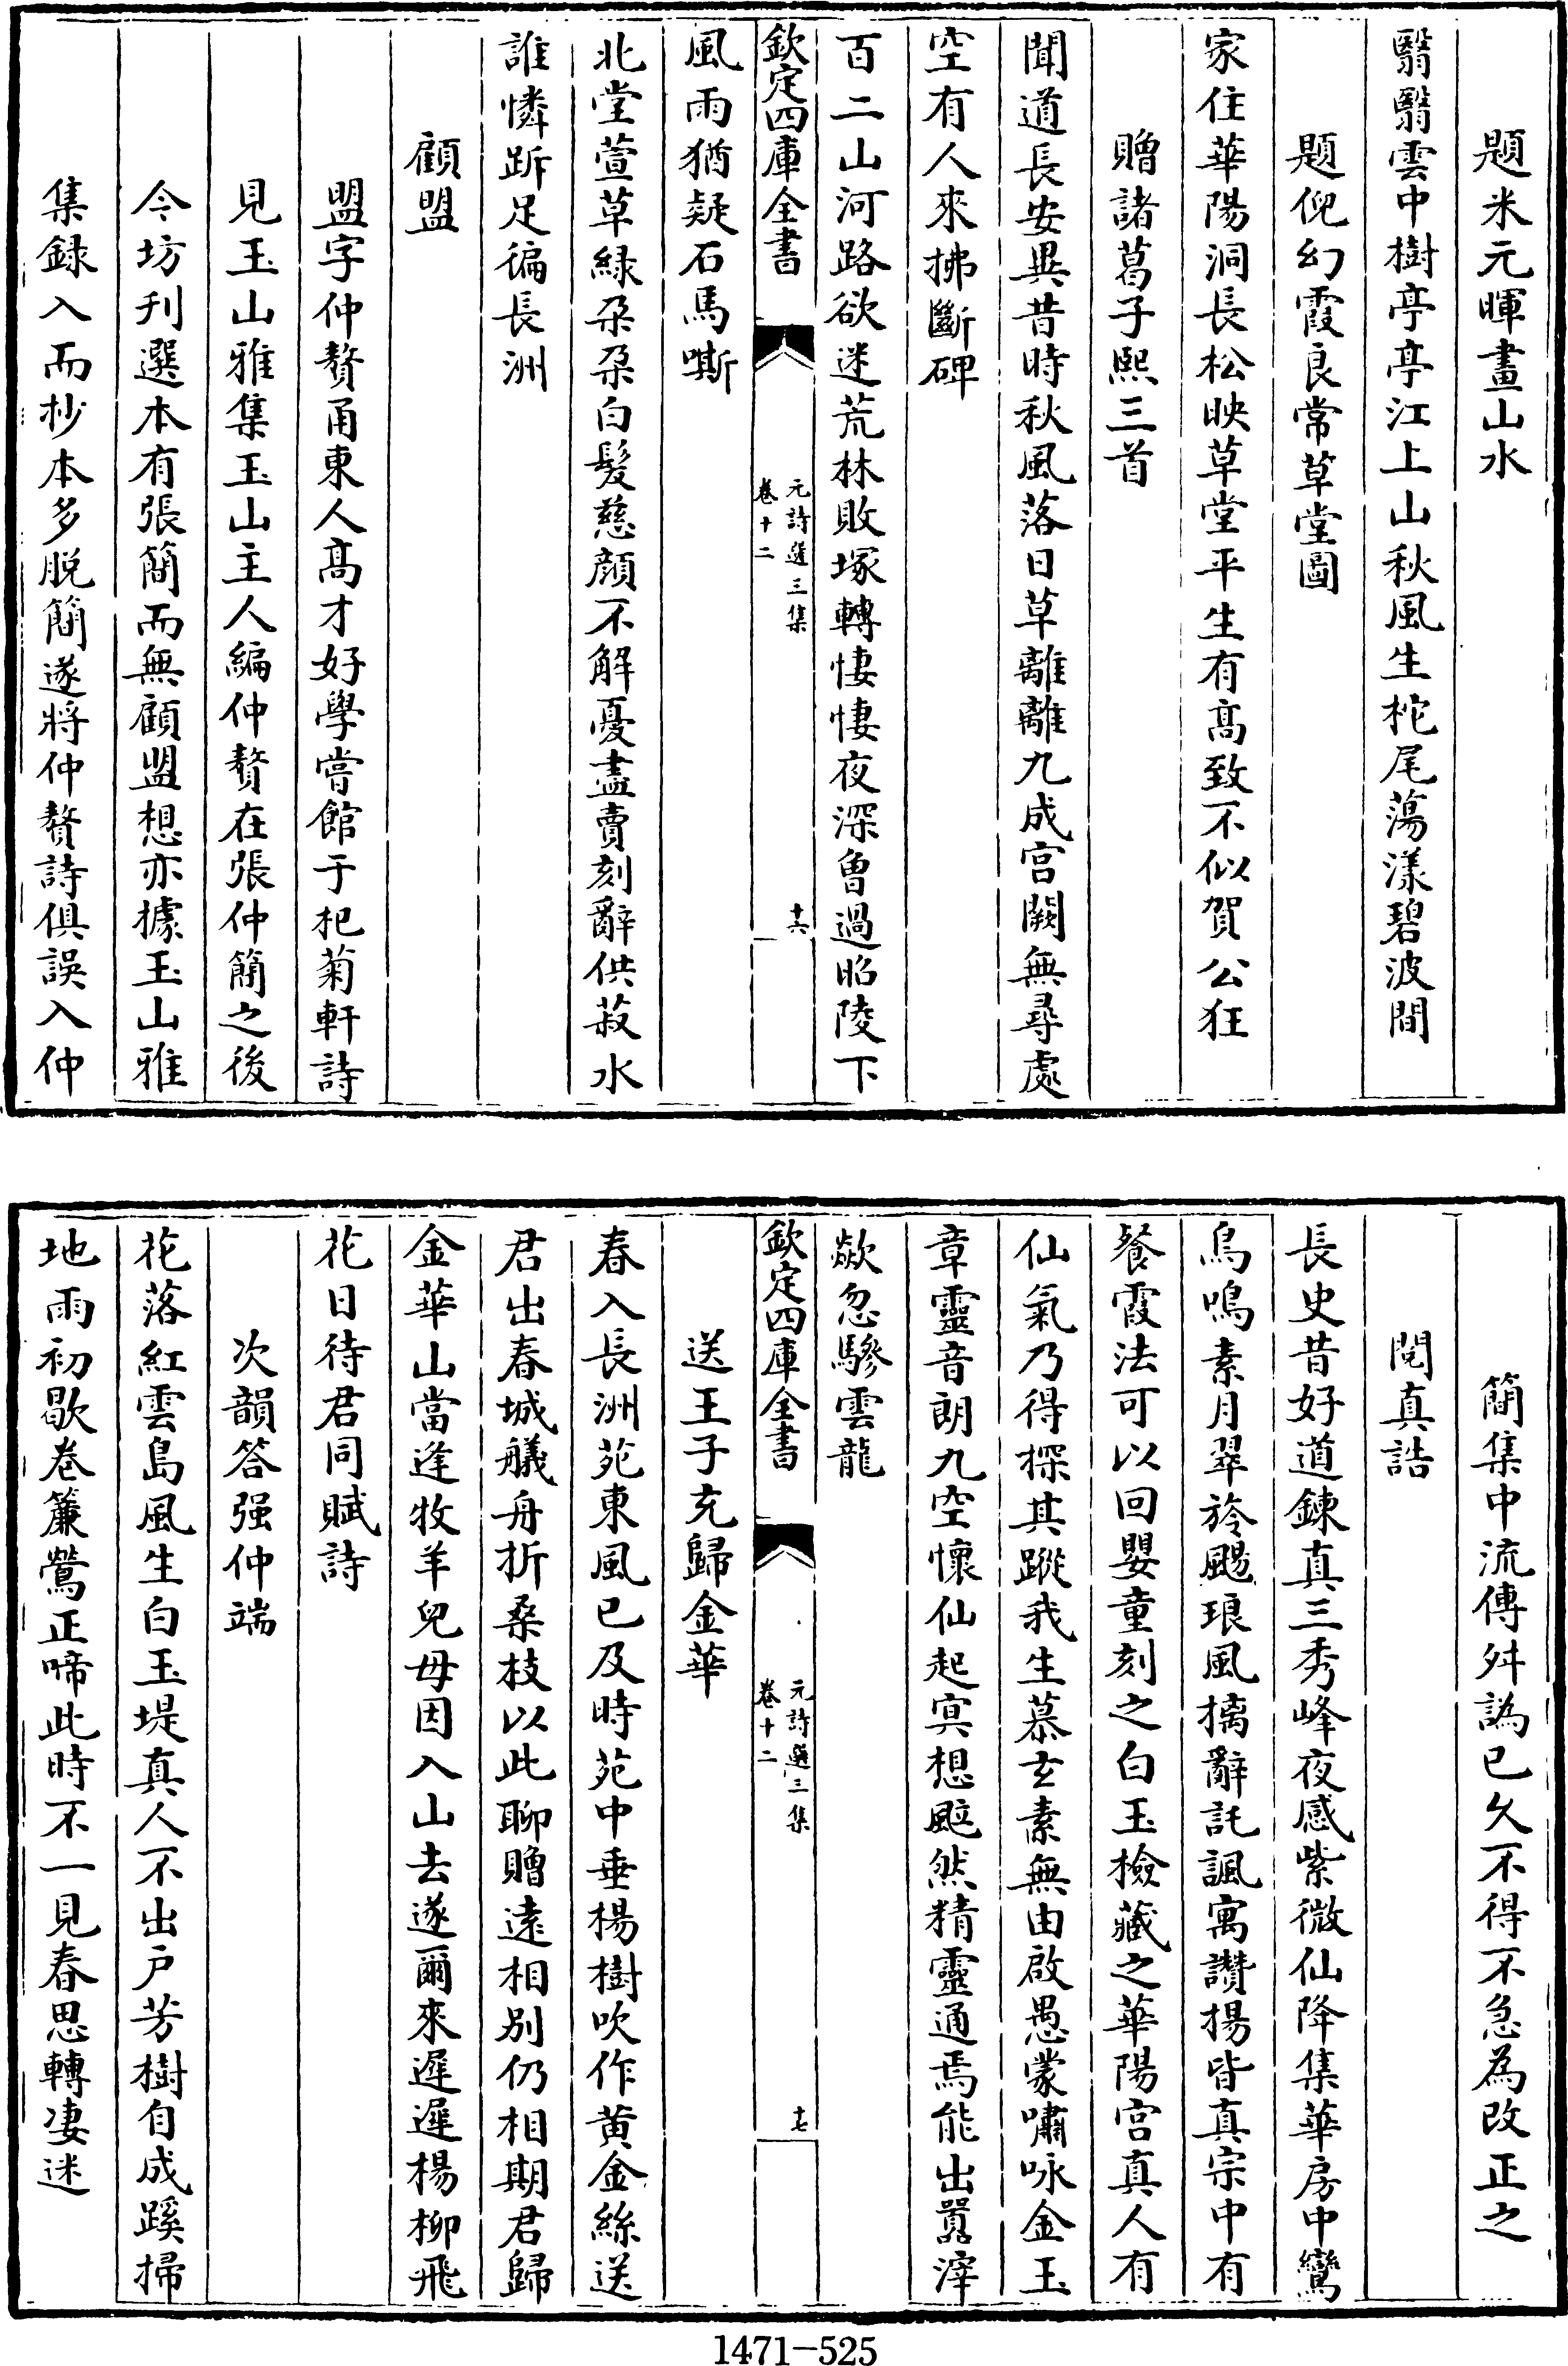 題米元暉畫山水
翳翳雲中樹亭亭江上山秋風生柁尾蕩漾碧波間
題倪幻霞良常草堂圖
家住華陽洞長松映草堂平生有髙致不似賀公狂
贈諸葛子熙三首
聞道長安異昔時秋風落日草離離九成宫闕無尋處
空有人來拂斷碑
百二山河路欲迷荒林敗塚轉悽悽夜深曾過昭陵下
欽定四庫全書
元詩選三集
卷十二
十六
風雨猶疑石馬嘶
北堂萱草緑朶朶白髮慈顔不解憂盡賣刻辭供菽水
誰憐跅足徧長洲
顧盟
盟字仲贅甬東人髙才好學嘗館于杞菊軒詩
見玉山雅集玉山主人編仲贅在張仲簡之後
今坊刋選本有張簡而無顧盟想亦據玉山雅
集録入而抄本多脱簡遂將仲贅詩俱誤入仲
簡集中流傳舛譌已久不得不急為改正之
閲真誥
長史昔好道鍊真三秀峰夜感紫微仙降集華房中鸞
鳥鳴素月翠旍颺琅風摛辭託諷寓讚揚皆真宗中有
餐霞法可以回嬰童刻之白玉檢藏之華陽宫真人有
仙氣乃得探其蹤我生慕玄素無由啟愚蒙嘯咏金玉
章靈音朗九空懷仙起㝠想颭然精靈通焉能出囂滓
歘忽驂雲龍
欽定四庫全書
元詩選三集
卷十二
十七
送王子充歸金華
春入長洲苑東風已及時苑中垂楊樹吹作黄金絲送
君出春城艤舟折桑枝以此聊贈逺相别仍相期君歸
金華山當逢牧羊兒毋因入山去遂爾來遲遲楊柳飛
花日待君同賦詩
次韻答强仲端
花落紅雲島風生白玉堤真人不出户芳樹自成蹊掃
地雨初歇卷簾鶯正啼此時不一見春思轉凄迷
1471-525